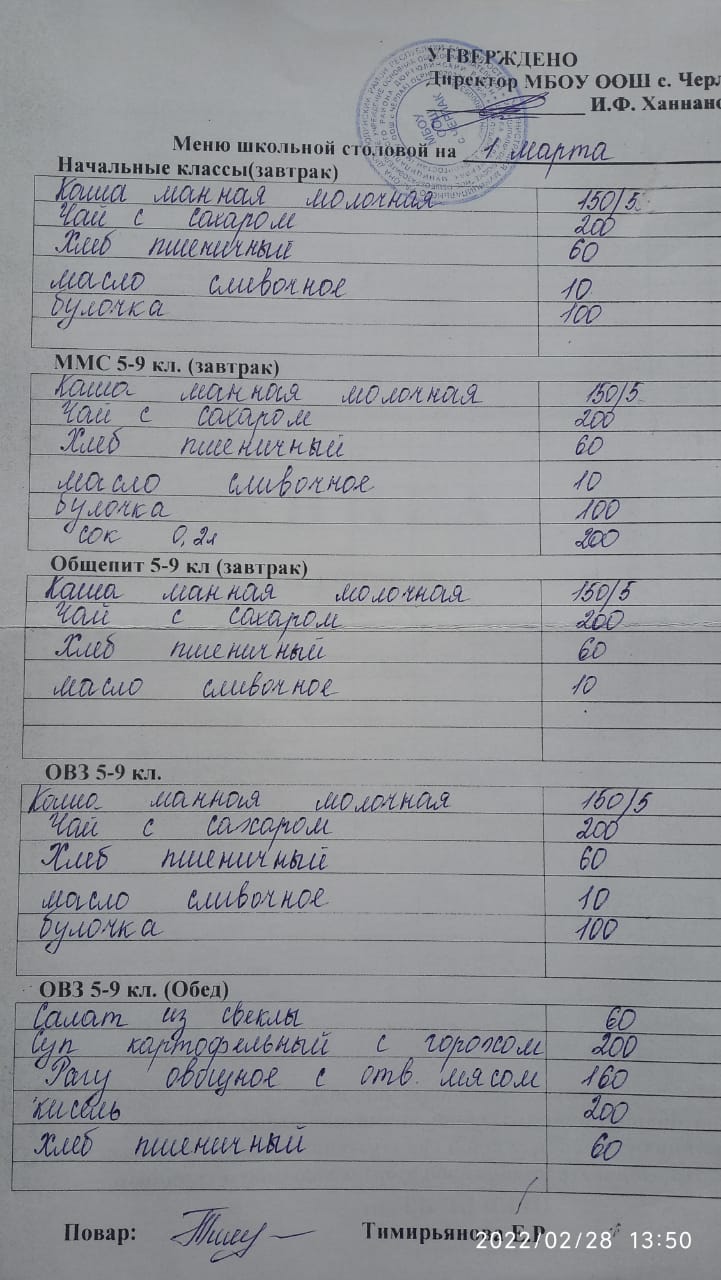 УТВЕРЖДЕНО
Директор МБОУ ООШ с. Черл
И.Ф. Ханнано
Меню школьной столовой на 1 марта
Начальные классы(завтрак)
Каша манная молочная 150/5
Чай с сахаром 200
Хлеб пшеничный 60
масло сливочное 10
булочка 100
ММС 5-9 кл. (завтрак)
Каша манная молочная 150/5
Чай с сахаром 200
Хлеб пшеничный 60
масло сливочное 10
булочка 100
сок 0,2л 200
Общепит 5-9 кл (завтрак)
Каша манная молочная 150/5
Чай с сахаром 200
Хлеб пшеничный 60
масло сливочное 10
ОВЗ 5-9 кл.
Каша манная молочная 150/5
Чай с сахаром 200
Хлеб пшеничный 60
масло сливочное 10
булочка 100
ОВЗ 5-9 кл. (Обед)
Салат из свеклы 60
Суп картофельный с горохом 200
Рагу овощное с отв. мясом 160
кисель 200
Хлеб пшеничный 60
Повар: Тимирьянова Е.Р.
2022/02/28 13:50